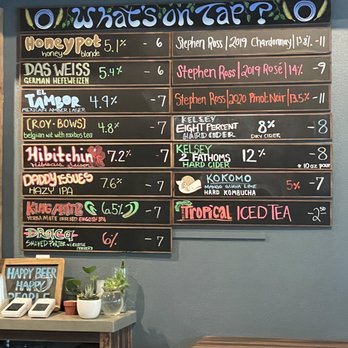 What's on Tap?
Honey pot 5.1% - 6
honey blonde
DAS WEISS 5.4% - 6
GERMAN HEFEWEIZEN
EL
TAMBOR 4.9% - 7
MEXICAN AMBER LAGER
(ROY-BOWS) 4.8% - 7
belgian wit with rooibos tea
Hibitchin' 7.2% - 7
Hibiscus Saison
DADDY ISSUES 7.6% - 7
HAZY IPA
6.5% - 7
YERBA MATE
6% - 7
Stephen Ross | 2019 Chardonnay | 13.8% - 11
Stephen Ross | 2019 Rosé | 14% - 9
Stephen Ross | 2020 Pinot Noir | 13.5% - 11
KELSEY
EIGHT PERCENT 8% - 8
HARD CIDER DRY CIDER
KELSEY
2 FATHOMS 12% - 8
HARD CIDER 10 oz pour
KOKOMO 5% - 7
MANGO GUAVA LIME
HARD KOMBUCHA
Tropical ICED TEA - 2.50
HAPPY BEER
HAPPY
PEOPLE